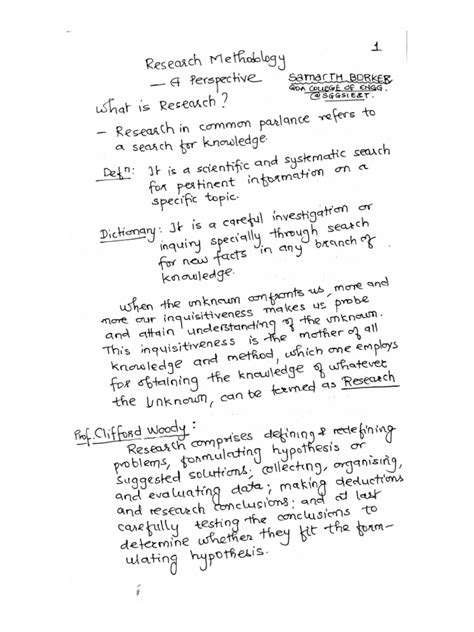 1
Research Methodology
— A Perspective
SAMARTH BORKER
GOA COLLEGE OF ENGG.
@SGGSIE&T.
What is Research?
– Research in common parlance refers to
a search for knowledge.
Defⁿ: It is a scientific and systematic search
for pertinent information on a
specific topic.
Dictionary: It is a careful investigation or
inquiry specially through search
for new facts in any branch of
knowledge.
When the unknown confronts us, more and
more our inquisitiveness makes us probe
and attain understanding of the unknown.
This inquisitiveness is the mother of all
knowledge and method, which one employs
for obtaining the knowledge of whatever
the unknown, can be termed as Research
Prof. Clifford Woody:
Research comprises defining & redefining
problems, formulating hypothesis or
suggested solutions; collecting, organising,
and evaluating data; making deductions
and research conclusions; and at last
carefully testing the conclusions to
determine whether they fit the form-
ulating hypothesis.